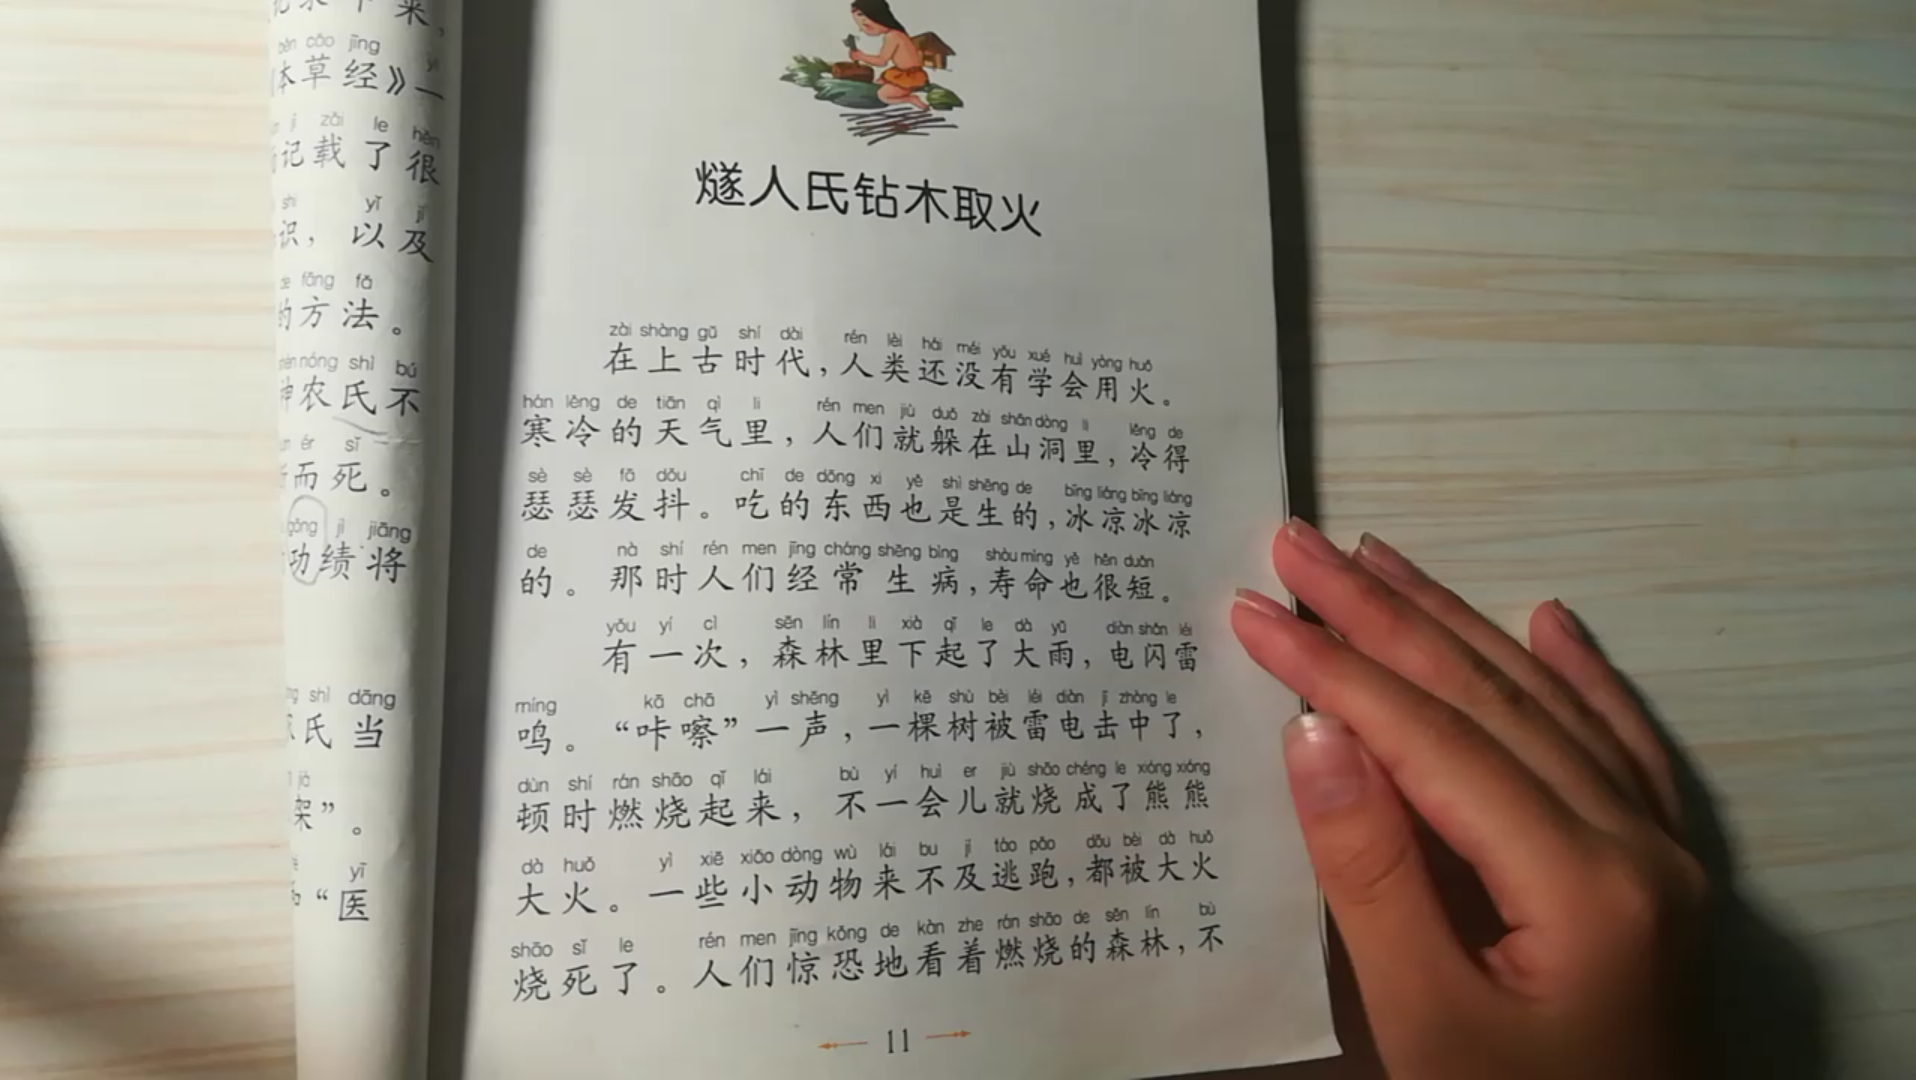 来，
běn cǎo jīng yì
本草经》一
jì zǎi le hěn
记载了很
shi yǐ jí
识，以及
de fāng fǎ
的方法。
shén nóng shì bú
神农氏不
ér sǐ
而死。
gōng jì jiāng
功绩将
shì dāng
氏当
jià
架”。
yī
“医
燧人氏钻木取火
zài shàng gǔ shí dài rén lèi hái méi yǒu xué huì yòng huǒ
在上古时代，人类还没有学会用火。
hán lěng de tiān qì li rén men jiù duǒ zài shān dòng li lěng de
寒冷的天气里，人们就躲在山洞里，冷得
sè sè fā dǒu chī de dōng xi yě shì shēng de bīng liáng bīng liáng
瑟瑟发抖。吃的东西也是生的，冰凉冰凉
de nà shí rén men jīng cháng shēng bìng shòu mìng yě hěn duǎn
的。那时人们经常生病，寿命也很短。
yǒu yí cì sēn lín li xià qǐ le dà yǔ diàn shǎn léi
有一次，森林里下起了大雨，电闪雷
míng kā chā yì shēng yì kē shù bèi léi diàn jī zhòng le
鸣。“咔嚓”一声，一棵树被雷电击中了，
dùn shí rán shāo qǐ lái bù yí huì er jiù shāo chéng le xióng xióng
顿时燃烧起来，不一会儿就烧成了熊熊
dà huǒ yì xiē xiǎo dòng wù lái bu jí táo pǎo dōu bèi dà huǒ
大火。一些小动物来不及逃跑，都被大火
shāo sǐ le rén men jīng kǒng de kàn zhe rán shāo de sēn lín bù
烧死了。人们惊恐地看着燃烧的森林，不
11